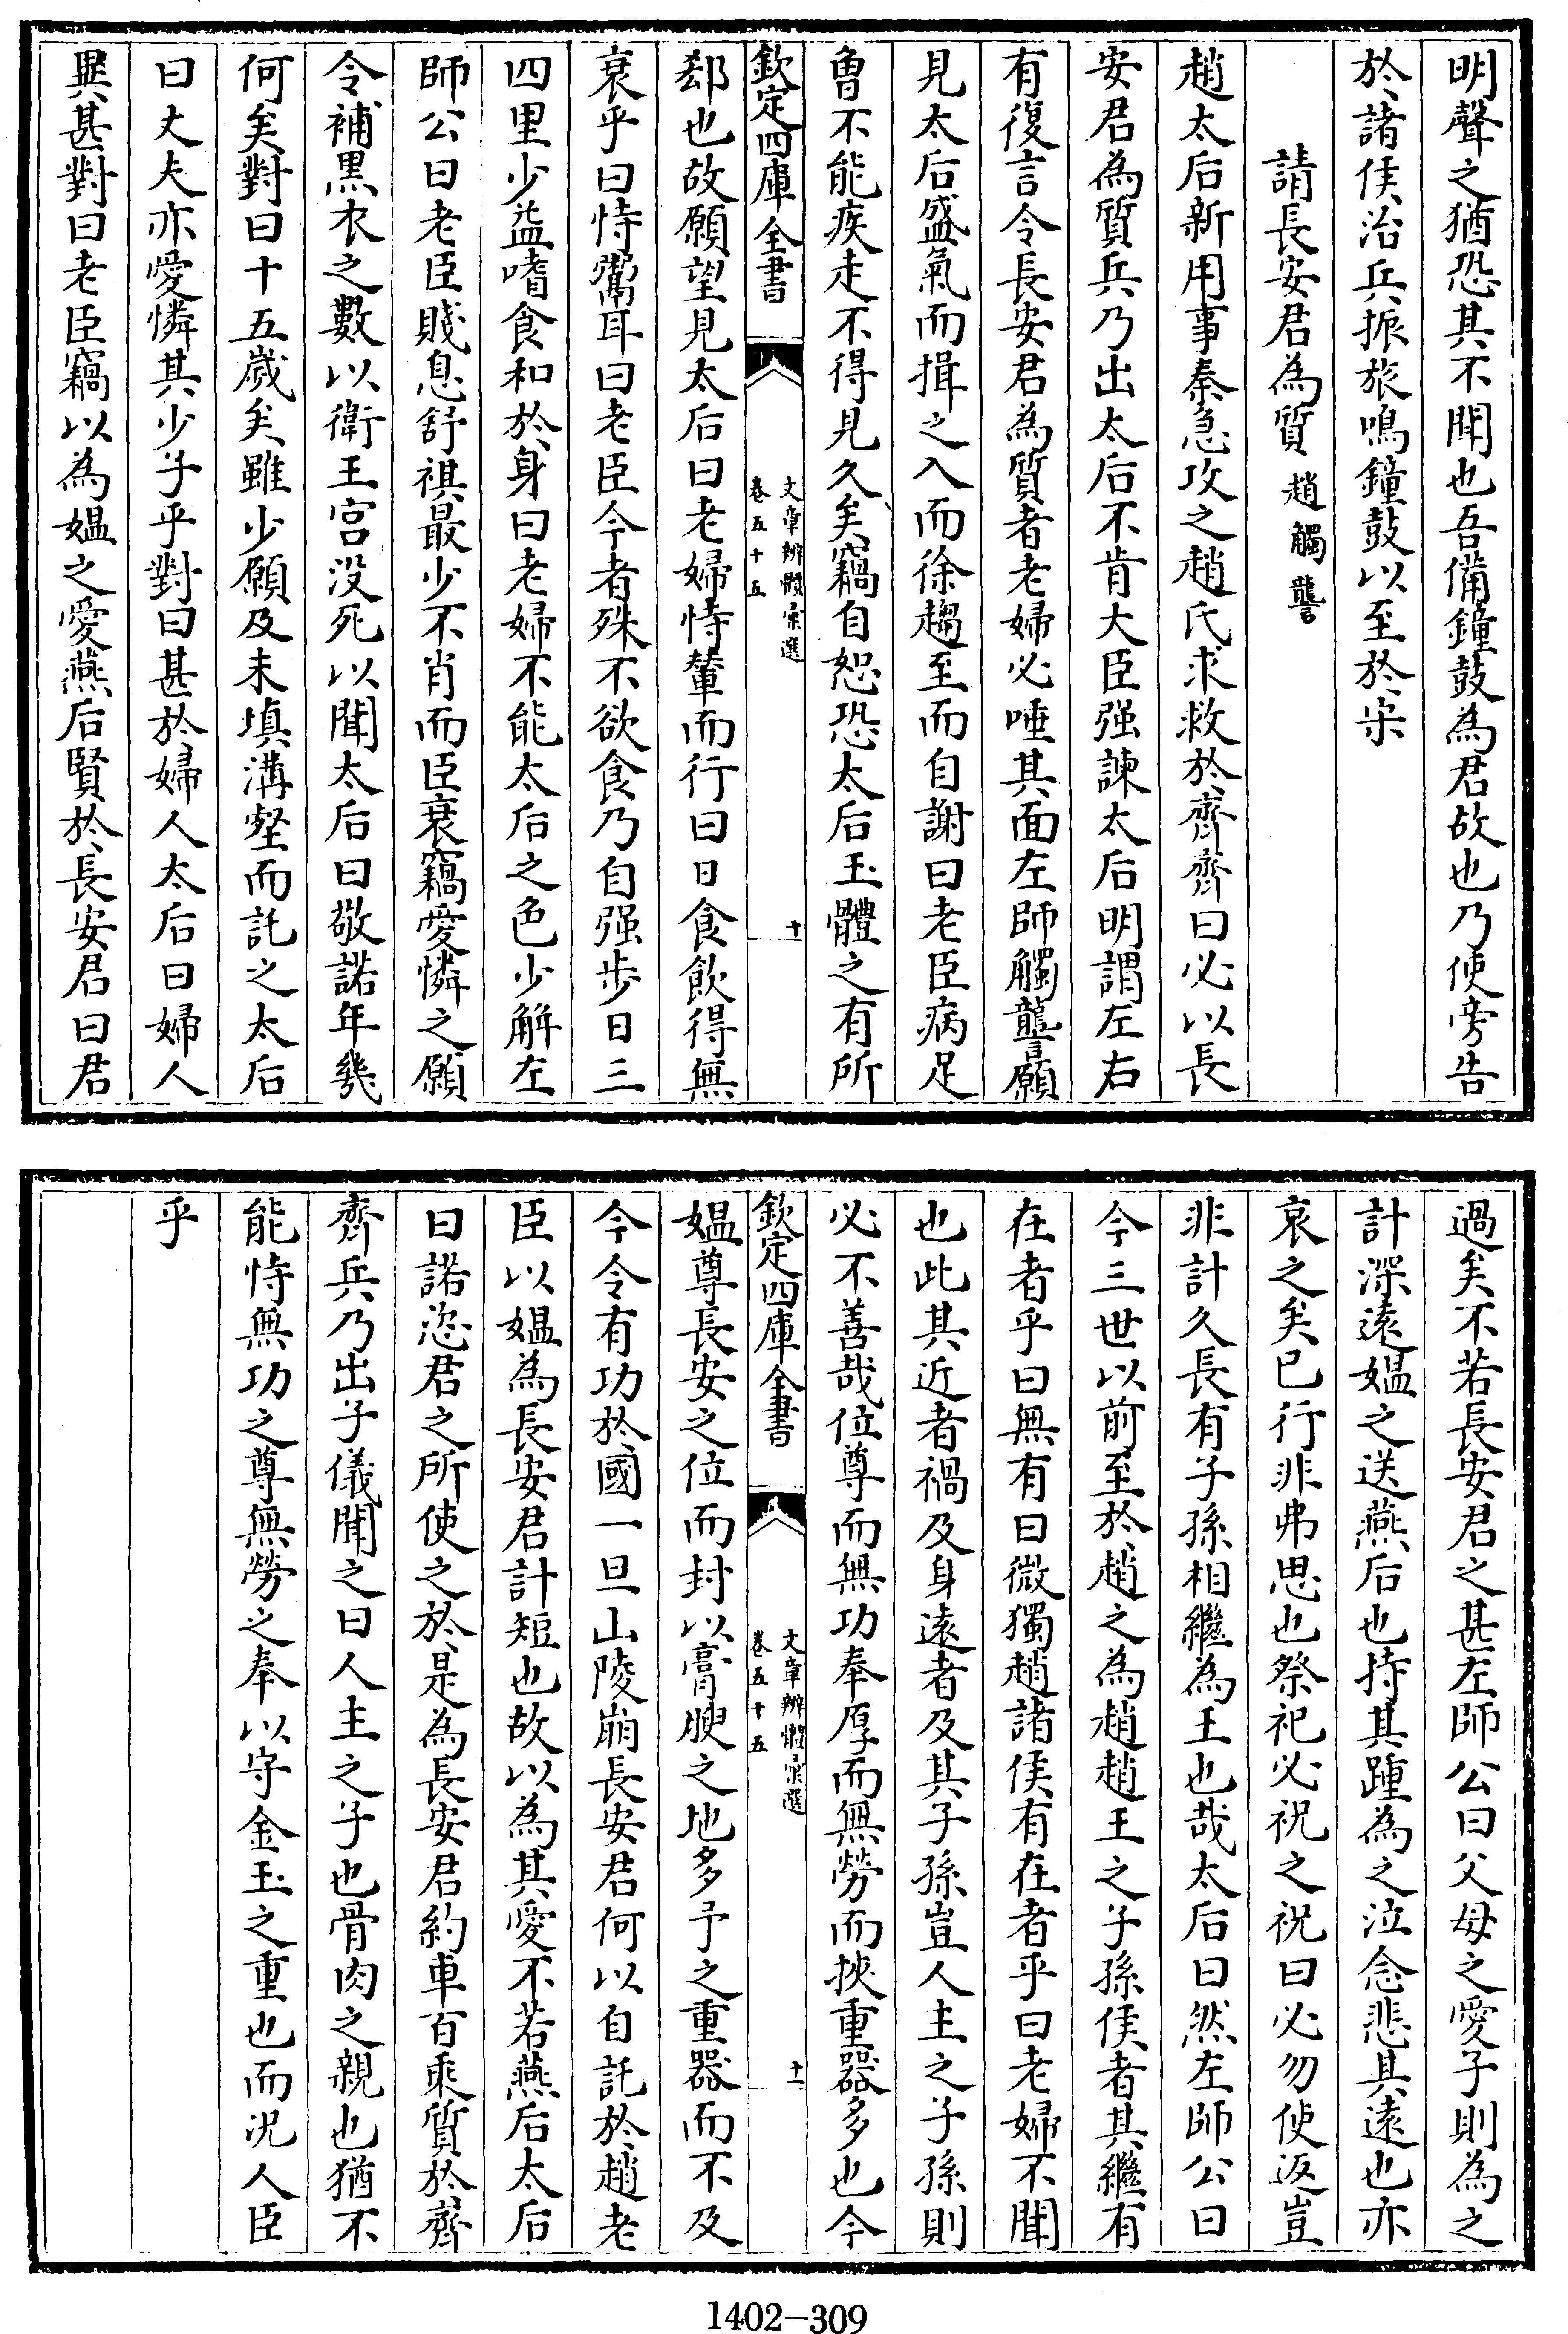 明聲之猶恐其不聞也吾備鐘鼓為君故也乃使旁告
於諸侯治兵振旅鳴鐘鼓以至於宋
請長安君為質 趙觸讋
趙太后新用事秦急攻之趙氏求救於齊齊曰必以長
安君為質兵乃出太后不肯大臣强諫太后明謂左右
有復言令長安君為質者老婦必唾其面左師觸讋願
見太后盛氣而揖之入而徐趨至而自謝曰老臣病足
曾不能疾走不得見久矣竊自恕恐太后玉體之有所
欽定四庫全書
文章辨體彙選
卷五十五
十
郄也故願望見太后曰老婦恃輦而行曰日食飲得無
衰乎曰恃鬻耳曰老臣今者殊不欲食乃自强步日三
四里少益嗜食和於身曰老婦不能太后之色少解左
師公曰老臣賤息舒祺最少不肖而臣衰竊愛憐之願
令補黒衣之數以衛王宫没死以聞太后曰敬諾年幾
何矣對曰十五歲矣雖少願及未填溝壑而託之太后
曰丈夫亦愛憐其少子乎對曰甚於婦人太后曰婦人
異甚對曰老臣竊以為媪之愛燕后賢於長安君曰君
過矣不若長安君之甚左師公曰父母之愛子則為之
計深遠媪之送燕后也持其踵為之泣念悲其遠也亦
哀之矣已行非弗思也祭祀必祝之祝曰必勿使返豈
非計久長有子孫相繼為王也哉太后曰然左師公曰
今三世以前至於趙之為趙趙王之子孫侯者其繼有
在者乎曰無有曰微獨趙諸侯有在者乎曰老婦不聞
也此其近者禍及身遠者及其子孫豈人主之子孫則
必不善哉位尊而無功奉厚而無勞而挾重器多也今
欽定四庫全書
文章辨體彙選
卷五十五
十一
媪尊長安之位而封以膏腴之地多予之重器而不及
今令有功於國一旦山陵崩長安君何以自託於趙老
臣以媪為長安君計短也故以為其愛不若燕后太后
曰諾恣君之所使之於是為長安君約車百乘質於齊
齊兵乃出子儀聞之曰人主之子也骨肉之親也猶不
能恃無功之尊無勞之奉以守金玉之重也而况人臣
乎
1402-309